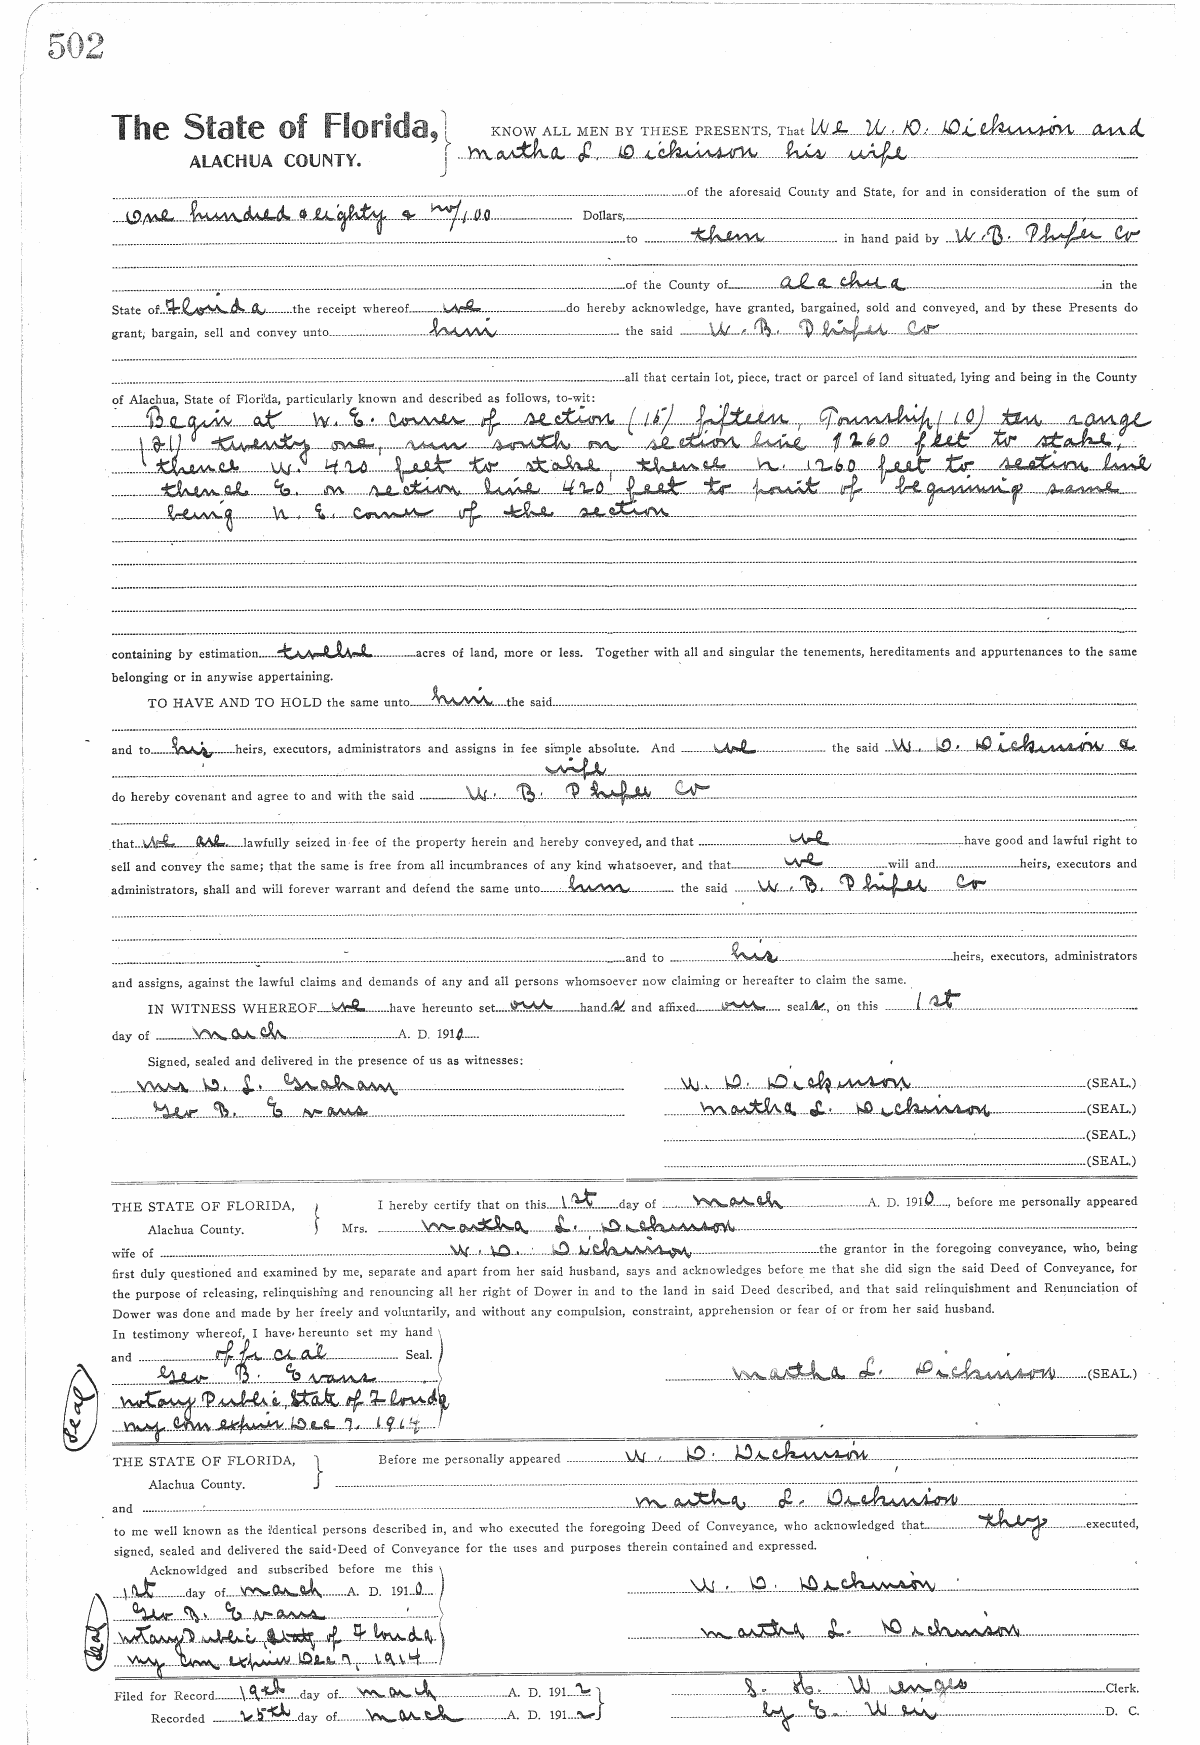 502
The State of Florida, KNOW ALL MEN BY THESE PRESENTS, That We W. D. Dickinson and
ALACHUA COUNTY. Martha L. Dickinson his wife
of the aforesaid County and State, for and in consideration of the sum of
One hundred & eighty & no/100 Dollars,
to them in hand paid by W. B. Phifer Co
of the County of Alachua in the
State of Florida the receipt whereof we do hereby acknowledge, have granted, bargained, sold and conveyed, and by these Presents do
grant, bargain, sell and convey unto him the said W. B. Phifer Co
all that certain lot, piece, tract or parcel of land situated, lying and being in the County
of Alachua, State of Florida, particularly known and described as follows, to-wit:
Begin at N. E. corner of section (15) fifteen, Township (10) ten range
(21) twenty one, run south on section line 1260 feet to stake,
thence W. 420 feet to stake, thence N. 1260 feet to section line
thence E. on section line 420 feet to point of beginning same
being N. E. corner of the section
containing by estimation twelve acres of land, more or less. Together with all and singular the tenements, hereditaments and appurtenances to the same
belonging or in anywise appertaining.
TO HAVE AND TO HOLD the same unto him the said
and to his heirs, executors, administrators and assigns in fee simple absolute. And we the said W. D. Dickinson &
wife
do hereby covenant and agree to and with the said W. B. Phifer Co
that we are lawfully seized in fee of the property herein and hereby conveyed, and that we have good and lawful right to
sell and convey the same; that the same is free from all incumbrances of any kind whatsoever, and that we will and heirs, executors and
administrators, shall and will forever warrant and defend the same unto him the said W. B. Phifer Co
and to his heirs, executors, administrators
and assigns, against the lawful claims and demands of any and all persons whomsoever now claiming or hereafter to claim the same.
IN WITNESS WHEREOF we have hereunto set our hands and affixed our seals, on this 1st
day of March A. D. 1910
Signed, sealed and delivered in the presence of us as witnesses:
Mrs D. L. Graham W. D. Dickinson (SEAL.)
Geo B. Evans Martha L. Dickinson (SEAL.)
(SEAL.)
(SEAL.)
THE STATE OF FLORIDA, I hereby certify that on this 1st day of March A. D. 1910, before me personally appeared
Alachua County. Mrs. Martha L. Dickinson
wife of W. D. Dickinson the grantor in the foregoing conveyance, who, being
first duly questioned and examined by me, separate and apart from her said husband, says and acknowledges before me that she did sign the said Deed of Conveyance, for
the purpose of releasing, relinquishing and renouncing all her right of Dower in and to the land in said Deed described, and that said relinquishment and Renunciation of
Dower was done and made by her freely and voluntarily, and without any compulsion, constraint, apprehension or fear of or from her said husband.
In testimony whereof, I have hereunto set my hand
and official Seal.
Geo B. Evans Martha L. Dickinson (SEAL)
Notary Public, State of Florida
My Com expires Dec 7, 1914
Seal
THE STATE OF FLORIDA, Before me personally appeared W. D. Dickinson
Alachua County.
and Martha L. Dickinson
to me well known as the identical persons described in, and who executed the foregoing Deed of Conveyance, who acknowledged that they executed,
signed, sealed and delivered the said Deed of Conveyance for the uses and purposes therein contained and expressed.
Acknowldged and subscribed before me this
1st day of March A. D. 1910 W. D. Dickinson
Geo B. Evans
Notary Public State of Florida Martha L. Dickinson
My Com expires Dec 7, 1914
Seal
Filed for Record 19th day of March A. D. 1912 S. H. Wienges Clerk.
Recorded 25th day of March A. D. 1912 by E. Weir D. C.